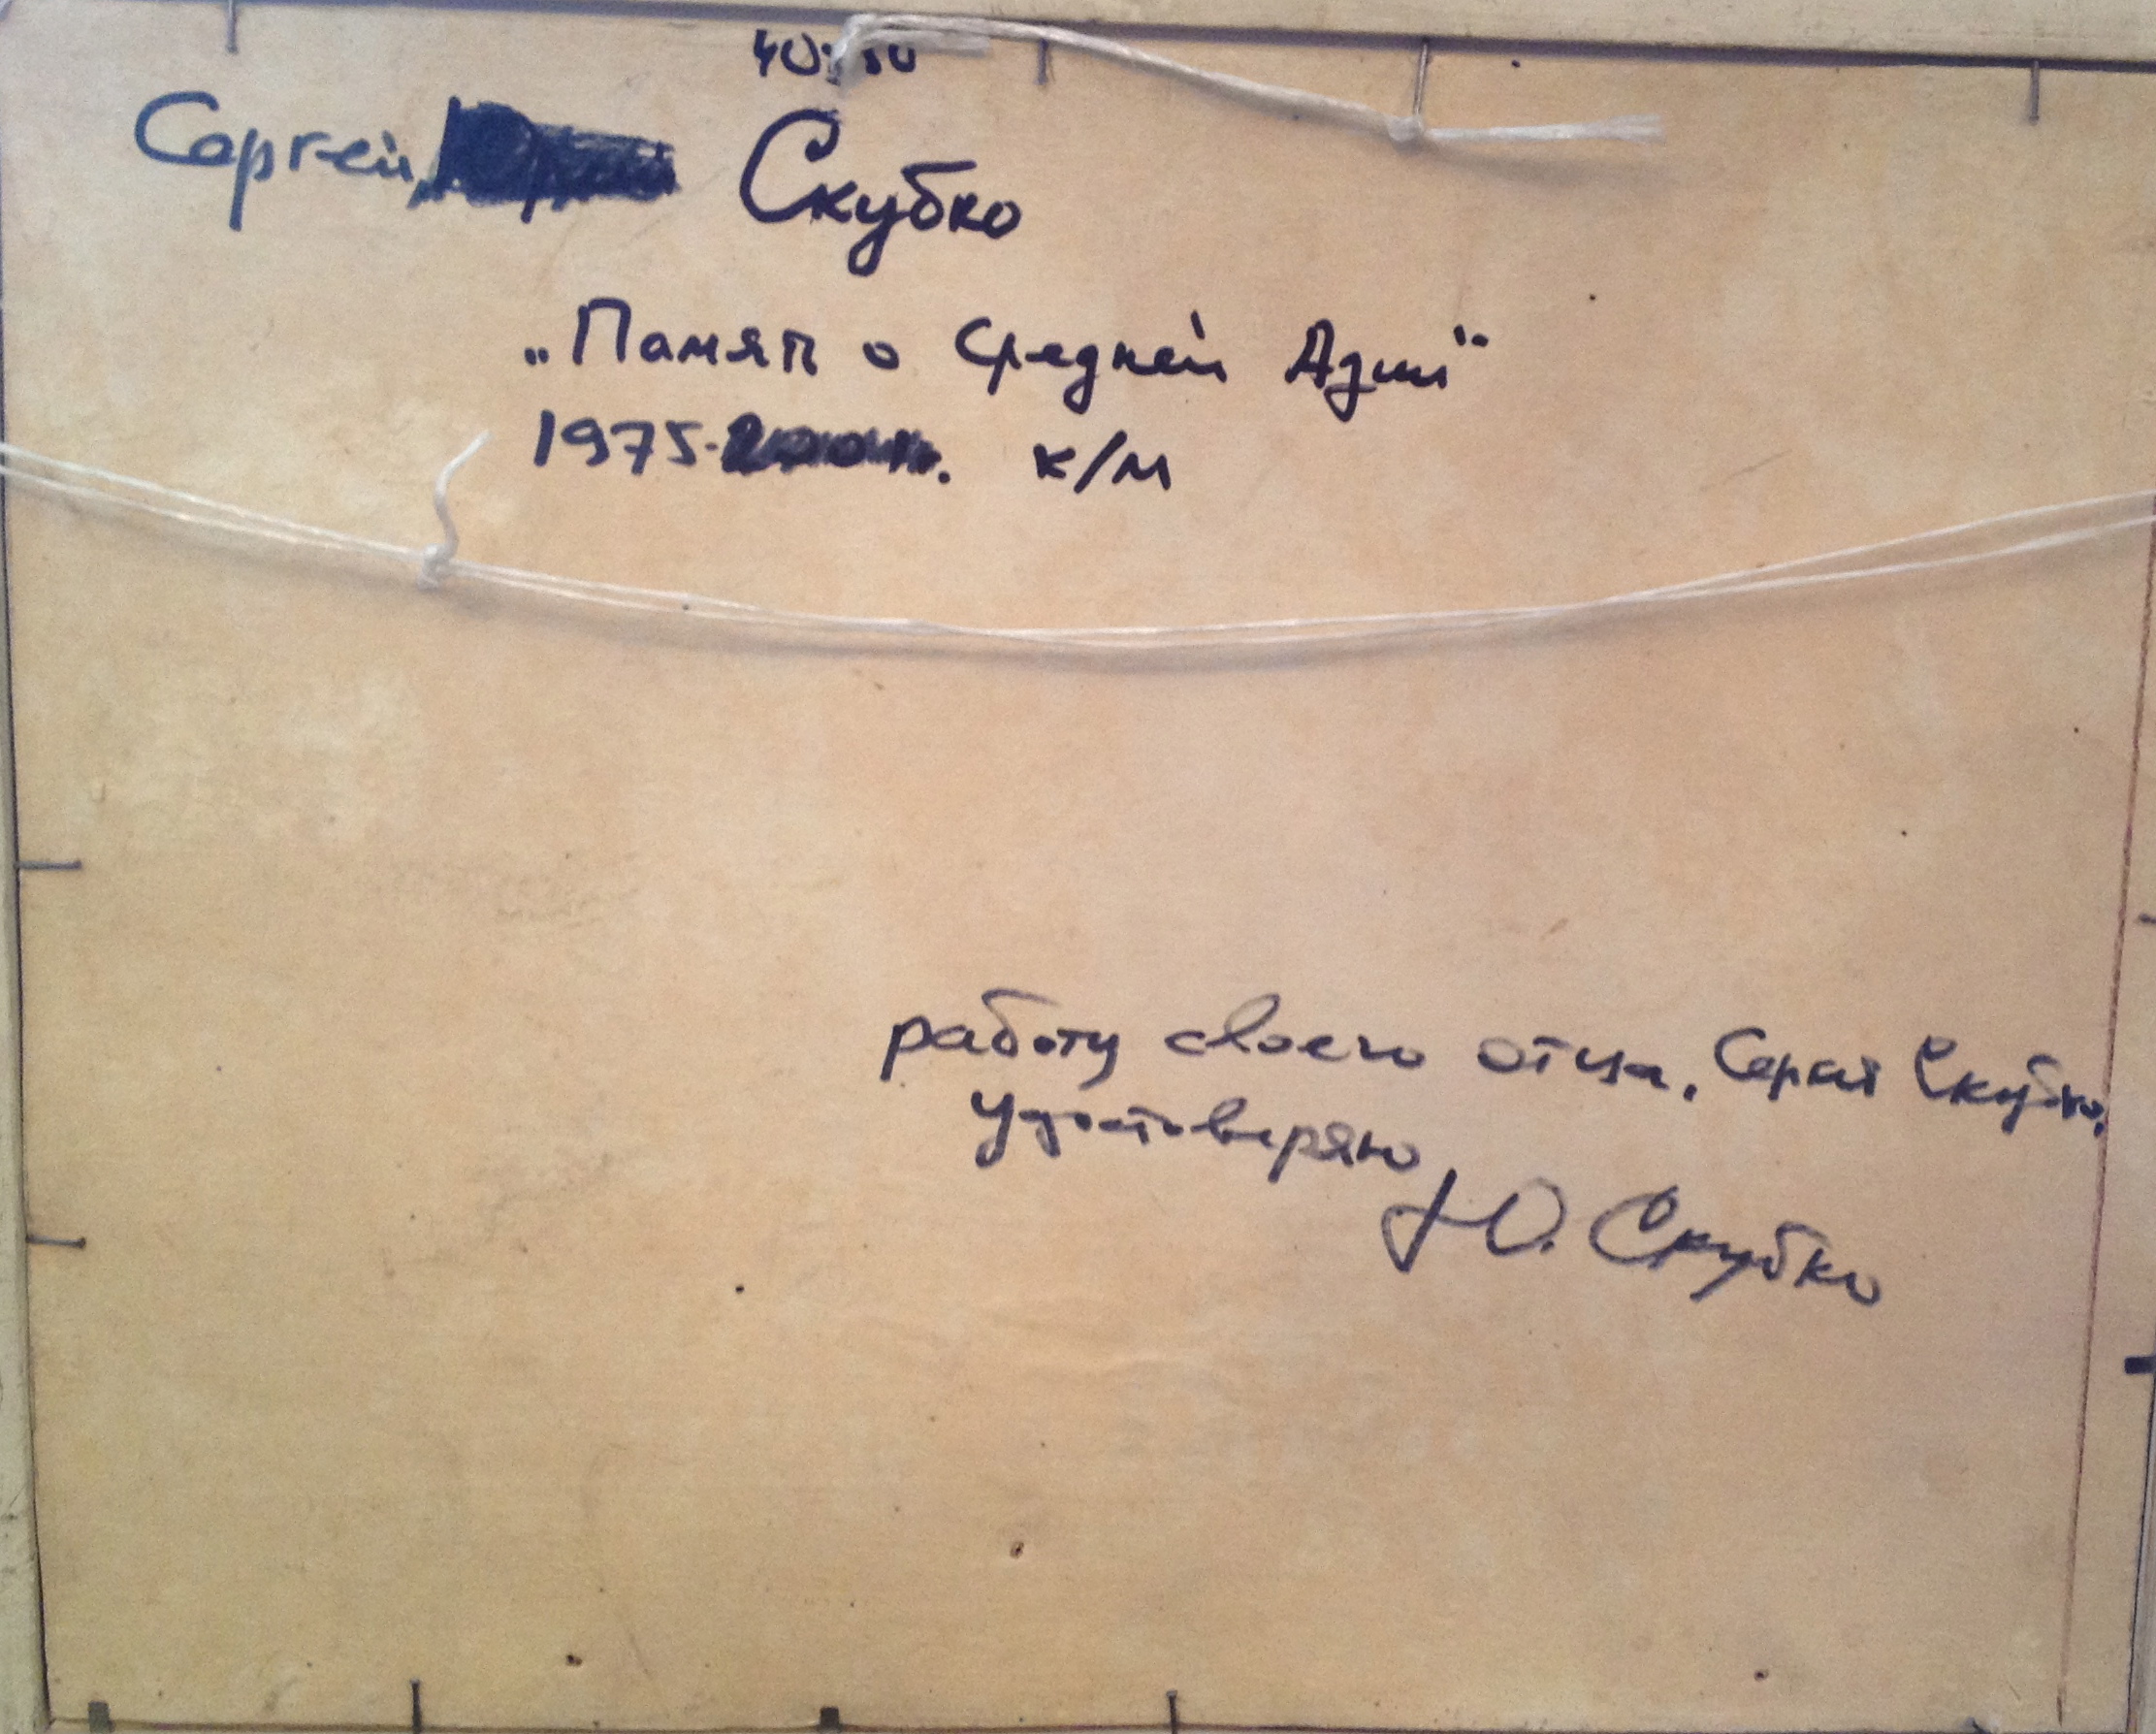 40x50
Сергей Скубко
„Память о Средней Азии"
1975 к/м
работу своего отца, Сергея Скубко,
удостоверяю
Ю. Скубко